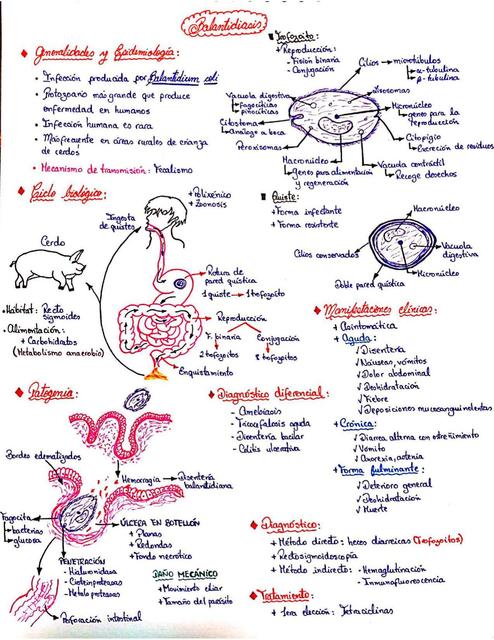 Balantidiasis
♦ Generalidades y Epidemiología:
• Infección producida por Balantidium coli
• Protozoario más grande que produce
enfermedad en humanos
• Infección humana es rara
• Más frecuente en áreas rurales de crianza
de cerdos
• Mecanismo de transmisión: Fecalismo
■ Trofozoíto:
+ Reproducción:
- Fisión binaria
- Conjugación
Cilios → microtúbulos
→ α-tubulina
→ β-tubulina
Vacuola digestiva
→ fagocíticas
→ pinocíticas
Lisosomas
Citostoma
→ Análogo a boca
Micronúcleo
→ genes para la
reproducción
Peroxisomas
Citopigio
→ Excreción de residuos
Macronúcleo
→ Genes para alimentación
y regeneración
Vacuola contráctil
→ Recoge desechos
♦ Ciclo biológico:
+ Polixénico
+ Zoonosis
Ingesta
de quistes
Cerdo
• Habitat: Recto
sigmoides
• Alimentación:
+ Carbohidatos
(Metabolismo anaerobio)
→ Rotura de
pared quística
1 quiste → 1 trofozoito
→ Reproducción
F. binaria
Conjugación
2 trofozoitos
8 trofozoitos
→ Enquistamiento
■ Quiste:
+ Forma infectante
+ Forma resistente
Macronúcleo
Cilios conservados
Vacuola
digestiva
Micronúcleo
Doble pared quística
♦ Manifestaciones clínicas:
+ Asintomática
+ Aguda:
✓ Disentería
✓ Náuseas, vómitos
✓ Dolor abdominal
✓ Deshidratación
✓ Fiebre
✓ Deposiciones mucosanguinolentas
+ Crónica:
✓ Diarrea alterna con estreñimiento
✓ Vómito
✓ Anorexia, astenia
+ Forma fulminante:
✓ Deterioro general
✓ Deshidratación
✓ Muerte
♦ Patogenia:
Bordes edematizados
Hemorragia → Disentería
balantidiana
Fagocita
→ bacterias
→ glucosa
ÚLCERA EN BOTELLÓN
+ Planas
+ Redondas
+ Fondo necrótico
PENETRACIÓN
- Hialuronidasa
- Cisteinproteasas
- Metaloproteasas
DAÑO MECÁNICO
+ Movimiento ciliar
+ Tamaño del parásito
Perforación intestinal
♦ Diagnóstico diferencial:
- Amebiasis
- Tricocefalosis aguda
- Disentería bacilar
- Colitis ulcerativa
♦ Diagnóstico:
+ Método directo: heces diarreicas (Trofozoitos)
+ Rectosigmoidoscopía
+ Método indirecto: - Hemaglutinación
- Inmunofluorescencia
♦ Tratamiento:
+ 1era elección: Tetraciclinas